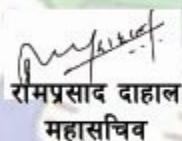 रामप्रसाद दाहाल
महासचिव